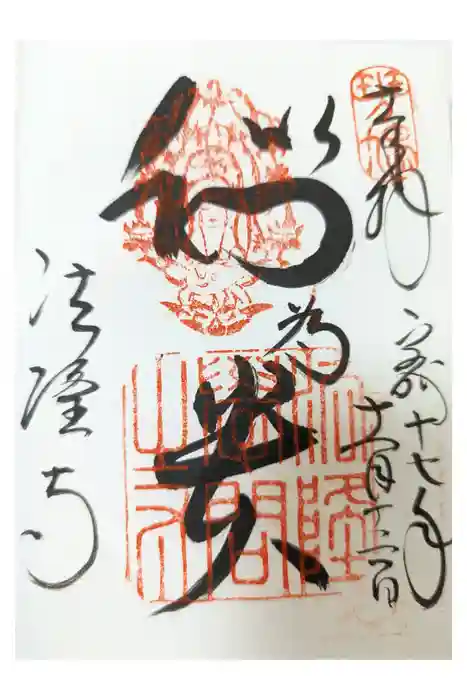 奉拝
十七年
十一月十二日
以和
為貴
法隆
學問
之寺
法隆寺